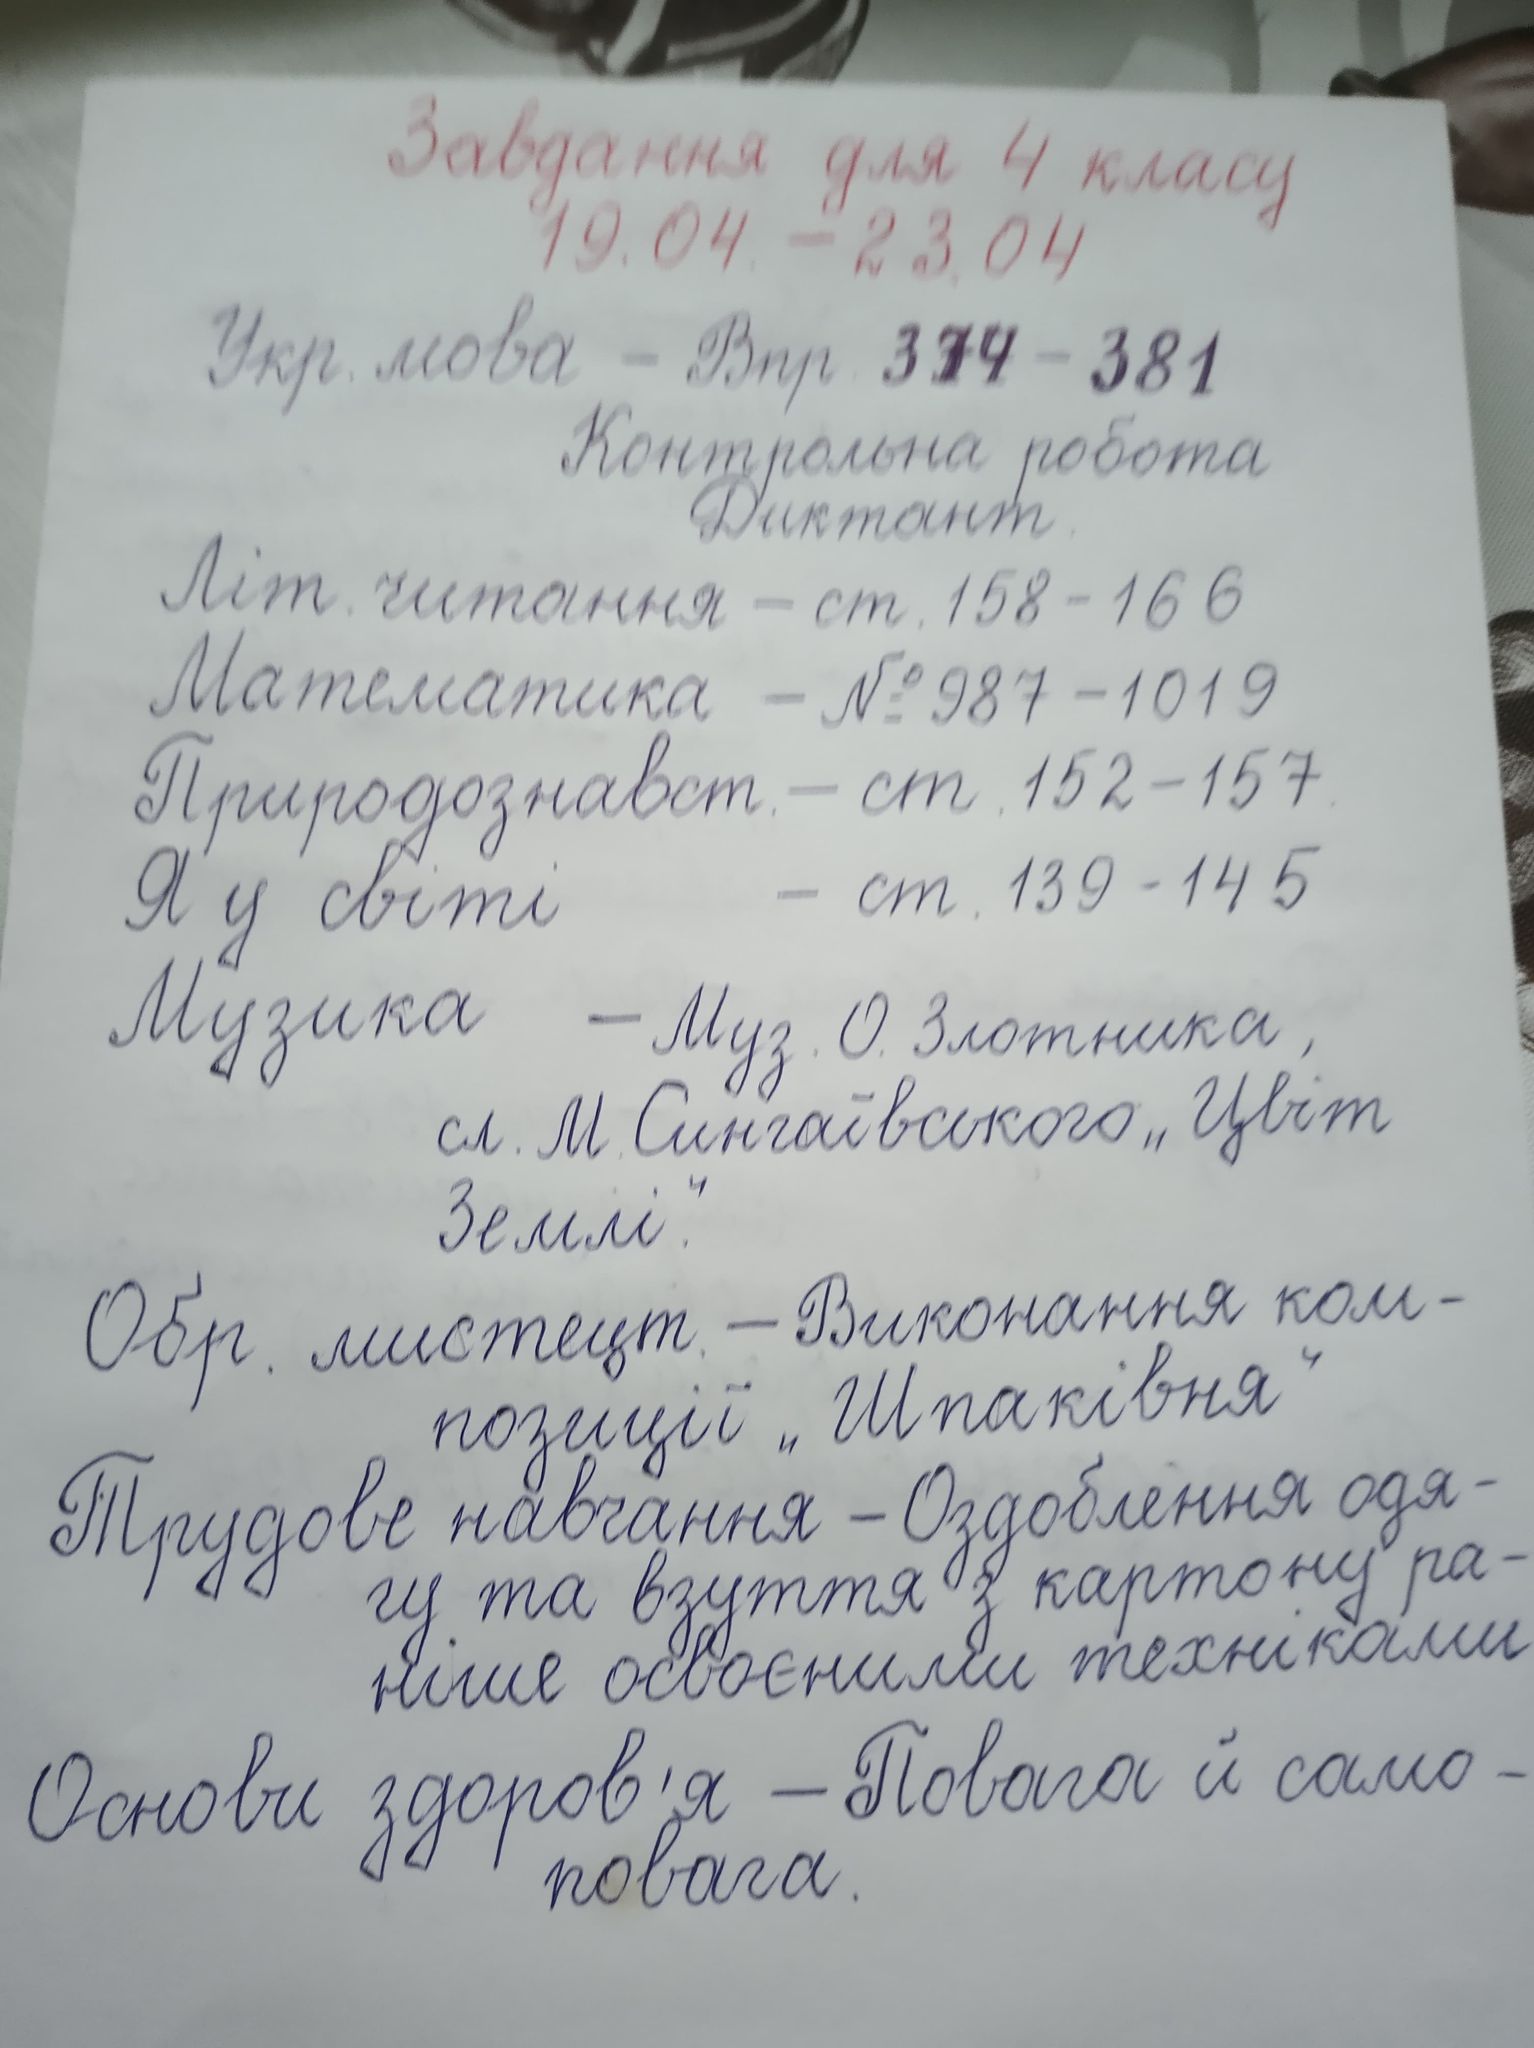 Завдання для 4 класу
19.04. - 23.04
Укр. мова - Впр. 374 - 381
Контрольна робота
Диктант.
Літ. читання - ст. 158 - 166
Математика - № 987 - 1019
Природознавст. - ст. 152 - 157.
Я у світі - ст. 139 - 145
Музика - Муз. О. Злотника,
сл. М. Сингаївського „Цвіт
Землі“.
Обр. мистецт. - Виконання ком-
позиції „Шпаківня“
Трудове навчання - Оздоблення одя-
гу та взуття з картону ра-
ніше освоєними техніками
Основи здоров'я - Повага й само-
повага.